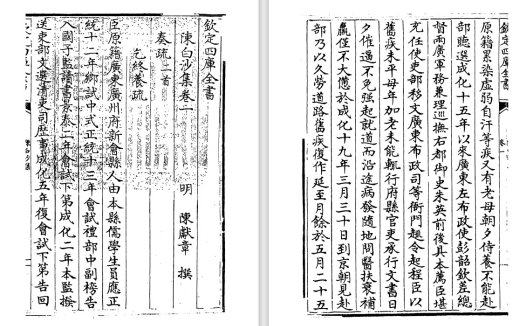 欽定四庫全書
陳白沙集卷一
明 陳獻章 撰
奏疏一首
乞終養疏
臣原籍廣東廣州府新會縣人由本縣儒學生員應正
統十二年鄉試中式正統十三年會試禮部中副榜告
入國子監讀書景泰二年會試下第成化二年本監撥
送吏部文選清吏司歷事成化五年復會試下第告回
欽定四庫全書
原籍累染虛弱自汗等疾又有老母朝夕侍養不能赴
部聽選成化十五年以來廣東左布政使彭韶欽差總
督兩廣軍務兼理巡撫右都御史朱英前後具本薦臣堪
充任使吏部移文廣東布政司等衙門趨令起程臣以
舊疾未平母年加老未能輒行府縣官吏承行文書日
夕催逼不免強起就道而沿途病發隨地問醫扶衰補
羸僅不大憊於成化十九年三月三十日到京朝見赴
部乃以久勞道路舊疾復作延至月餘於五月二十五